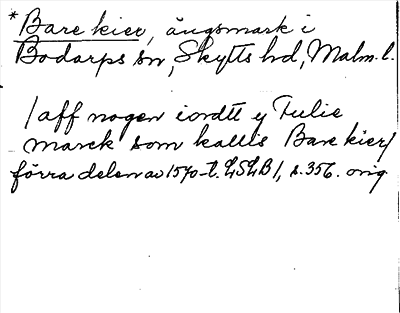 * Bare kier, ängsmark i
Bodarps sn, Skytts hd, Malm. l.
/aff nogen iordtt y Fulie
marck som kallis Bare kier/
förra delen av 1570-t. LSLB 1, s. 356. orig